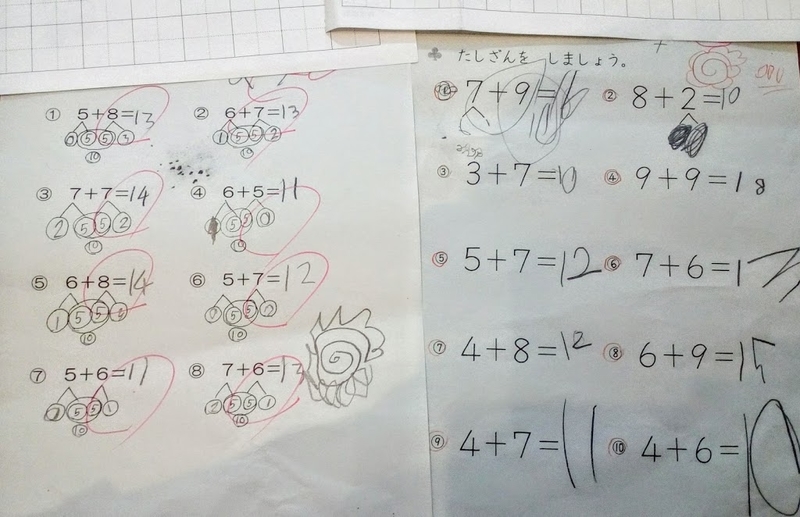 ① 5+8=13 ② 6+7=13
0 5 5 3 1 5 5 2
10 10
③ 7+7=14 ④ 6+5=11
2 5 5 2 5 5 0
10 10
⑤ 6+8=14 ⑥ 5+7=12
1 5 5 0 5 5 2
10 10
⑦ 5+6=11 ⑧ 7+6=13
5 5 1 2 5 5 1
10 10
♣ たしざんを しましょう。
① 7+9=16 ② 8+2=10
10
③ 3+7=10 ④ 9+9=18
⑤ 5+7=12 ⑥ 7+6=13
⑦ 4+8=12 ⑧ 6+9=15
⑨ 4+7=11 ⑩ 4+6=10